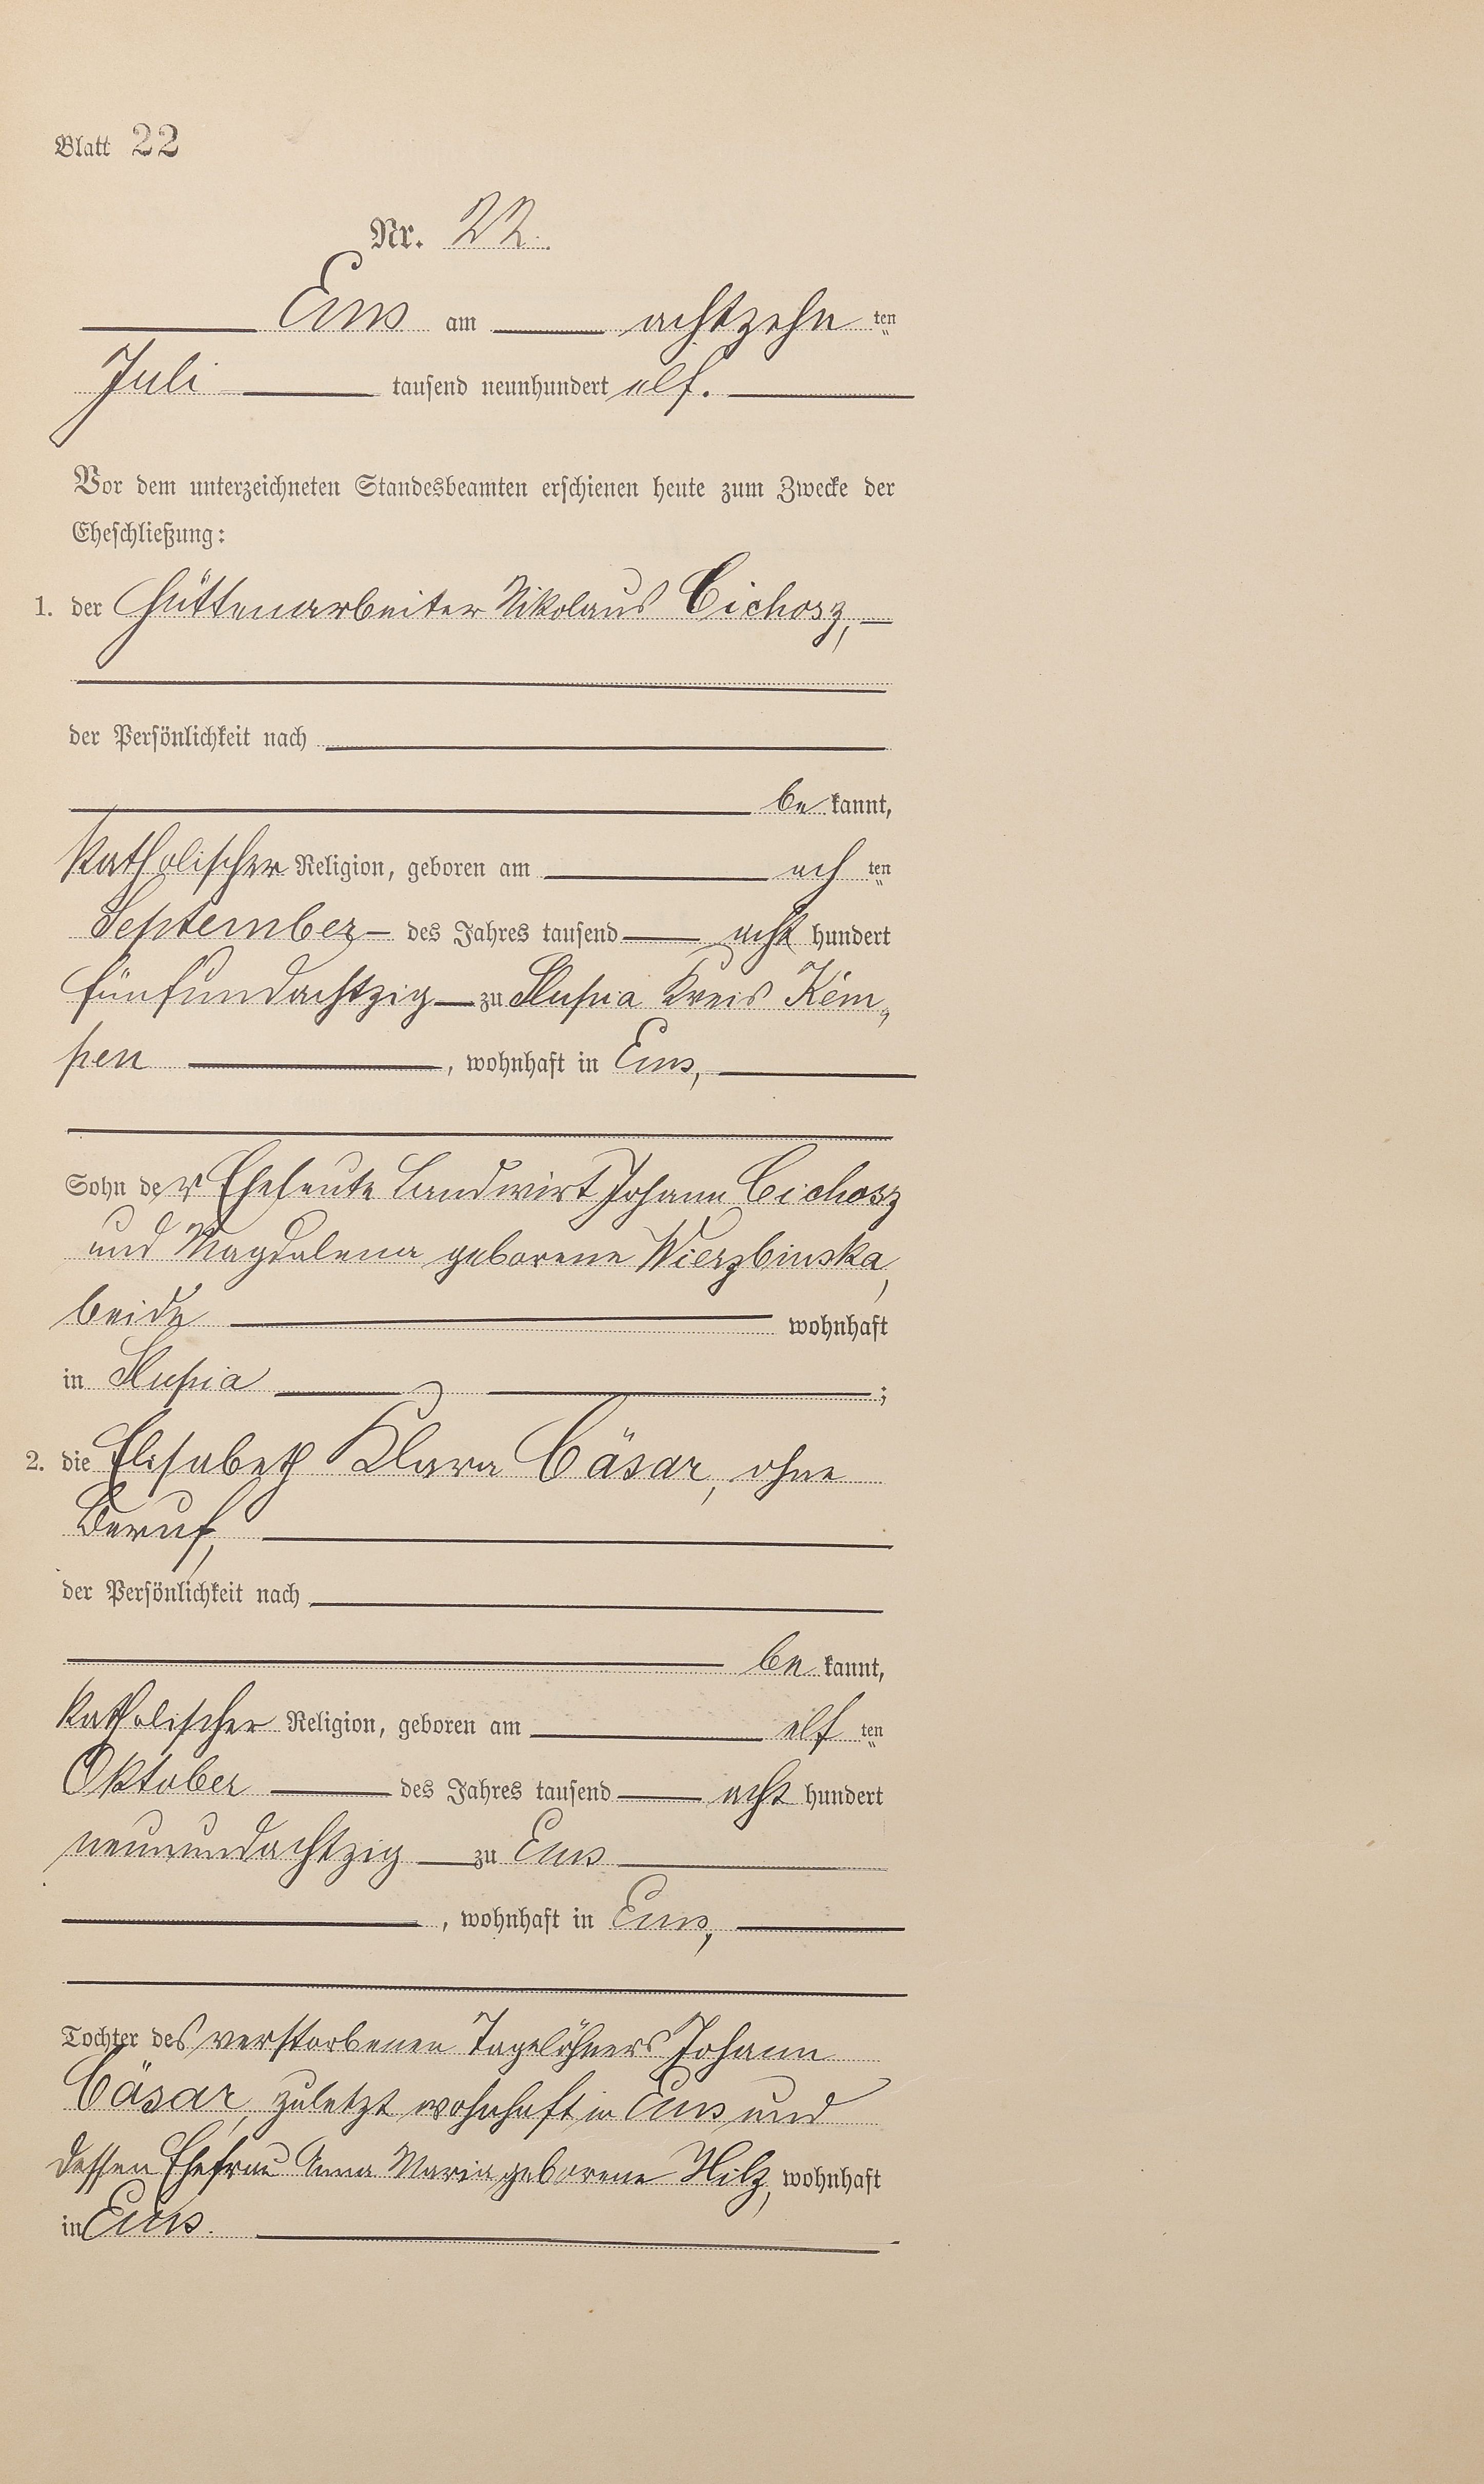 Blatt 22
Nr. 22.
Ems am achtzehn ten
Juli tausend neunhundert elf.
Vor dem unterzeichneten Standesbeamten erschienen heute zum Zwecke der
Eheschließung:
1. der Hüttenarbeiter Nikolaus Cichosz,
der Persönlichkeit nach
be kannt,
katholischer Religion, geboren am ach ten
September des Jahres tausend acht hundert
fünfundachtzig zu Slupia Kreis Kem„
pen, wohnhaft in Ems,
Sohn der Eheleute Landwirt Johann Cichosz
und Magdalena geborene Wierzbinska,
beide wohnhaft
in Slupia;
2. die Elisabeth Klara Cäsar, ohne
Beruf,
der Persönlichkeit nach
be kannt,
katholischer Religion, geboren am elf ten
Oktober des Jahres tausend acht hundert
neunundachtzig zu Ems
, wohnhaft in Ems,
Tochter des verstorbenen Tagelöhners Johann
Cäsar, zuletzt wohnhaft in Ems und
dessen Ehefrau Anna Maria geborene Hilz, wohnhaft
in Ems.